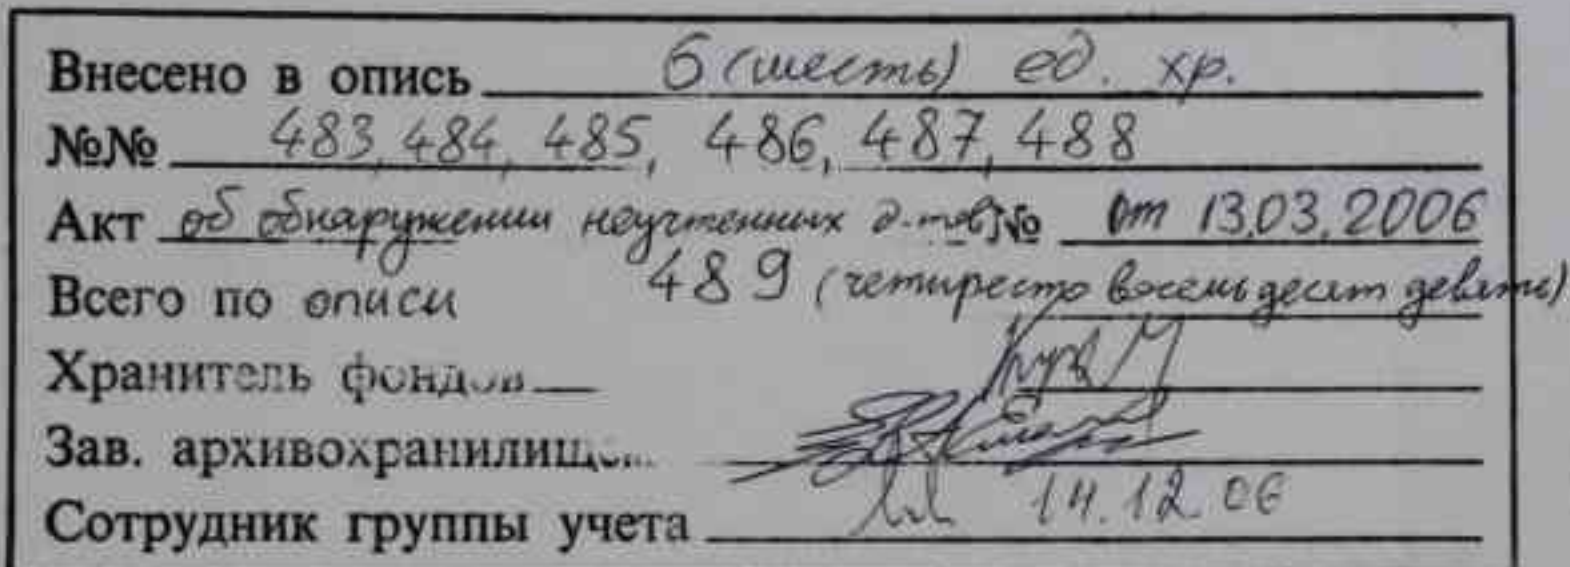 Внесено в опись 6 (шесть) ед. хр.
№№ 483, 484, 485, 486, 487, 488
Акт об обнаружении неучтенных д-тов № от 13.03.2006
Всего по описи 489 (четыресто восемьдесят девять)
Хранитель фондов
Зав. архивохранилищем
Сотрудник группы учета 14.12.06